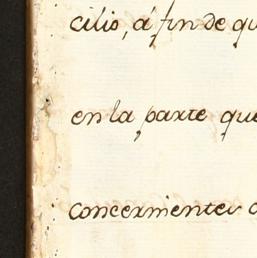 cilio, á fin de qu
en la parte que
concernientes